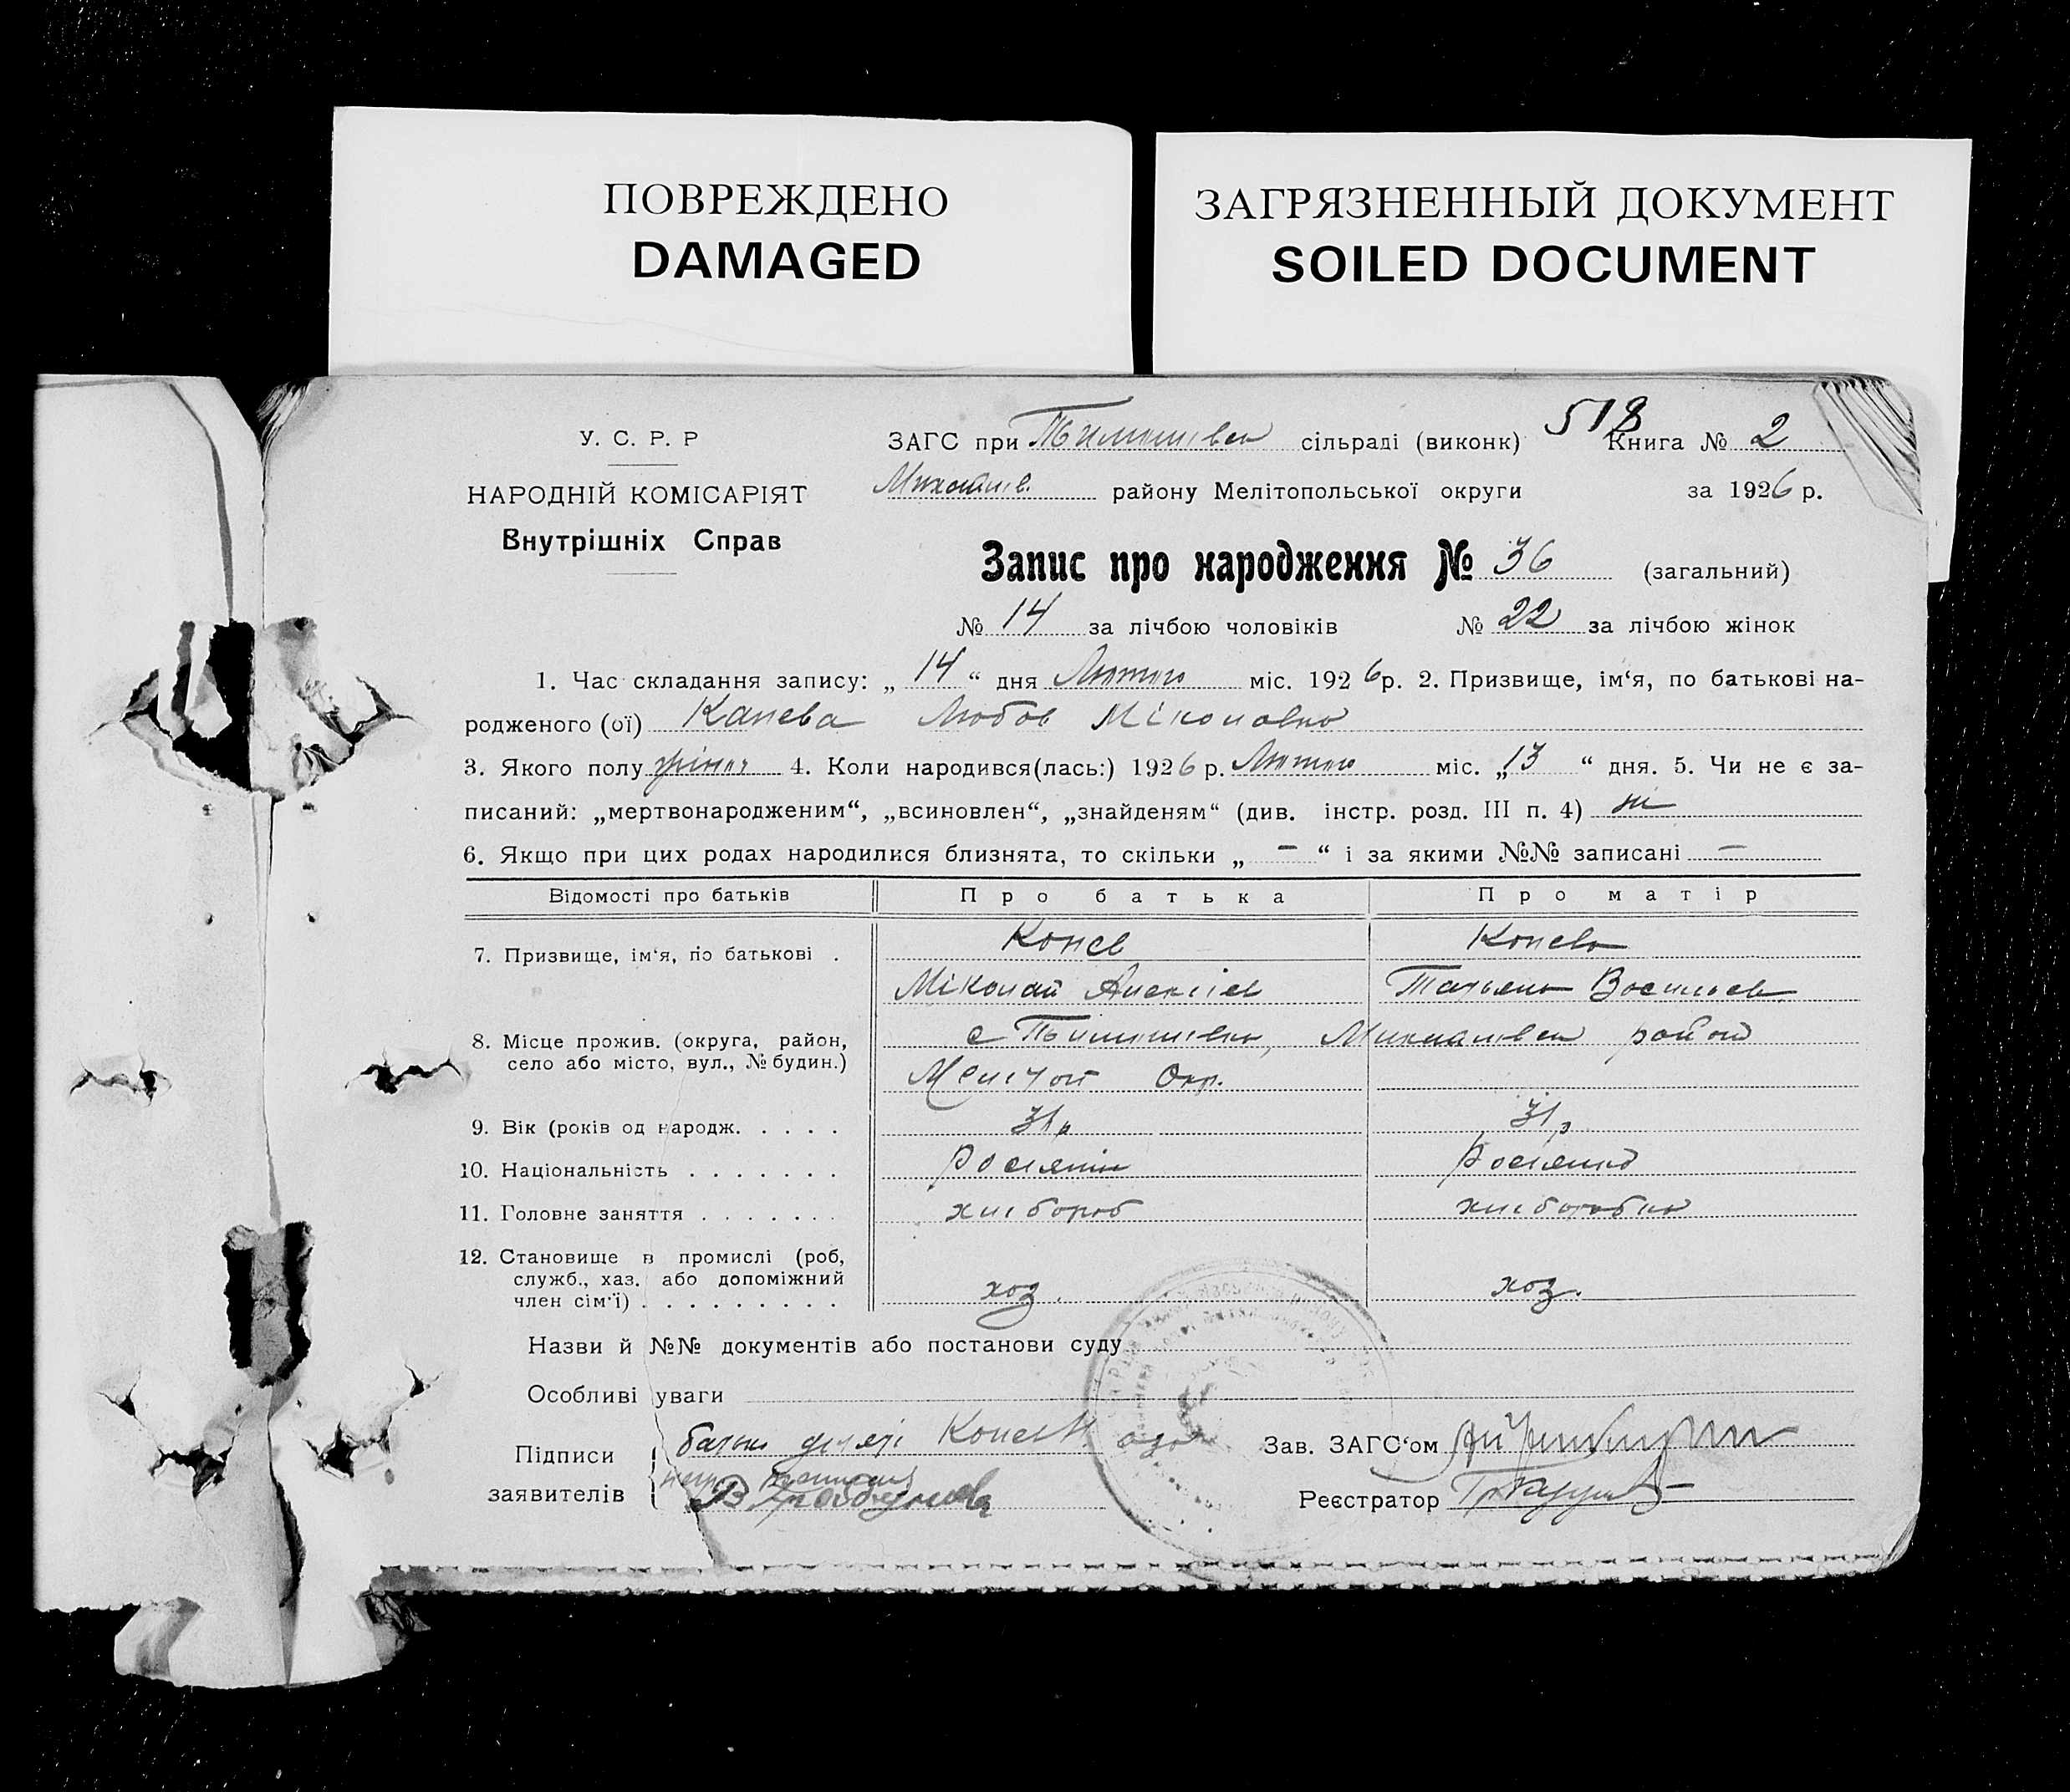 ПОВРЕЖДЕНО
DAMAGED
ЗАГРЯЗНЕННЫЙ ДОКУМЕНТ
SOILED DOCUMENT
518
У. С. Р. Р
НАРОДНІЙ КОМІСАРІЯТ
Внутрішніх Справ
ЗАГС при Тимошівск сільраді (виконк) Книга № 2
Михайлів. району Мелітопольської округи за 1926 р.
Запис про народження № 36 (загальний)
№ 14 за лічбою чоловіків № 22 за лічбою жінок
1. Час складання запису: „ 14 “ дня Лютого міс. 1926 р. 2. Призвище, ім‘я, по батькові на-
родженого (ої) Канева Любов Міколовна
3. Якого полу жіноч 4. Коли народився(лась:) 1926 р. Лютого міс. „ 13 “ дня. 5. Чи не є за-
писаний: „мертвонародженим“, „всиновлен“, „знайденям“ (див. інстр. розд. III п. 4) ні
6. Якщо при цих родах народилися близнята, то скільки „ — “ і за якими №№ записані —
Відомості про батьків Про батька Про матір
7. Призвище, ім‘я, по батькові . Конев Конева
Міколай Алексіев Татьяна Васильев
8. Місце прожив. (округа, район, село або місто, вул., № будин.) с Тимошівка, Михайлівск район
Мелітоп Окр.
9. Вік (років од народж. . . . . 31 р 31 р
10. Національність . . . . . . . Росіянін Росіянка
11. Головне заняття . . . . . . . хлібороб хліборобка
12. Становище в промислі (роб,
служб., хаз. або допоміжний
член сім‘ї) . . . . . . . . . хоз. хоз.
Назви й №№ документів або постанови суду
Особливі уваги
Підписи заявителів батько Конев
Зав. ЗАГС‘ом
Реєстратор